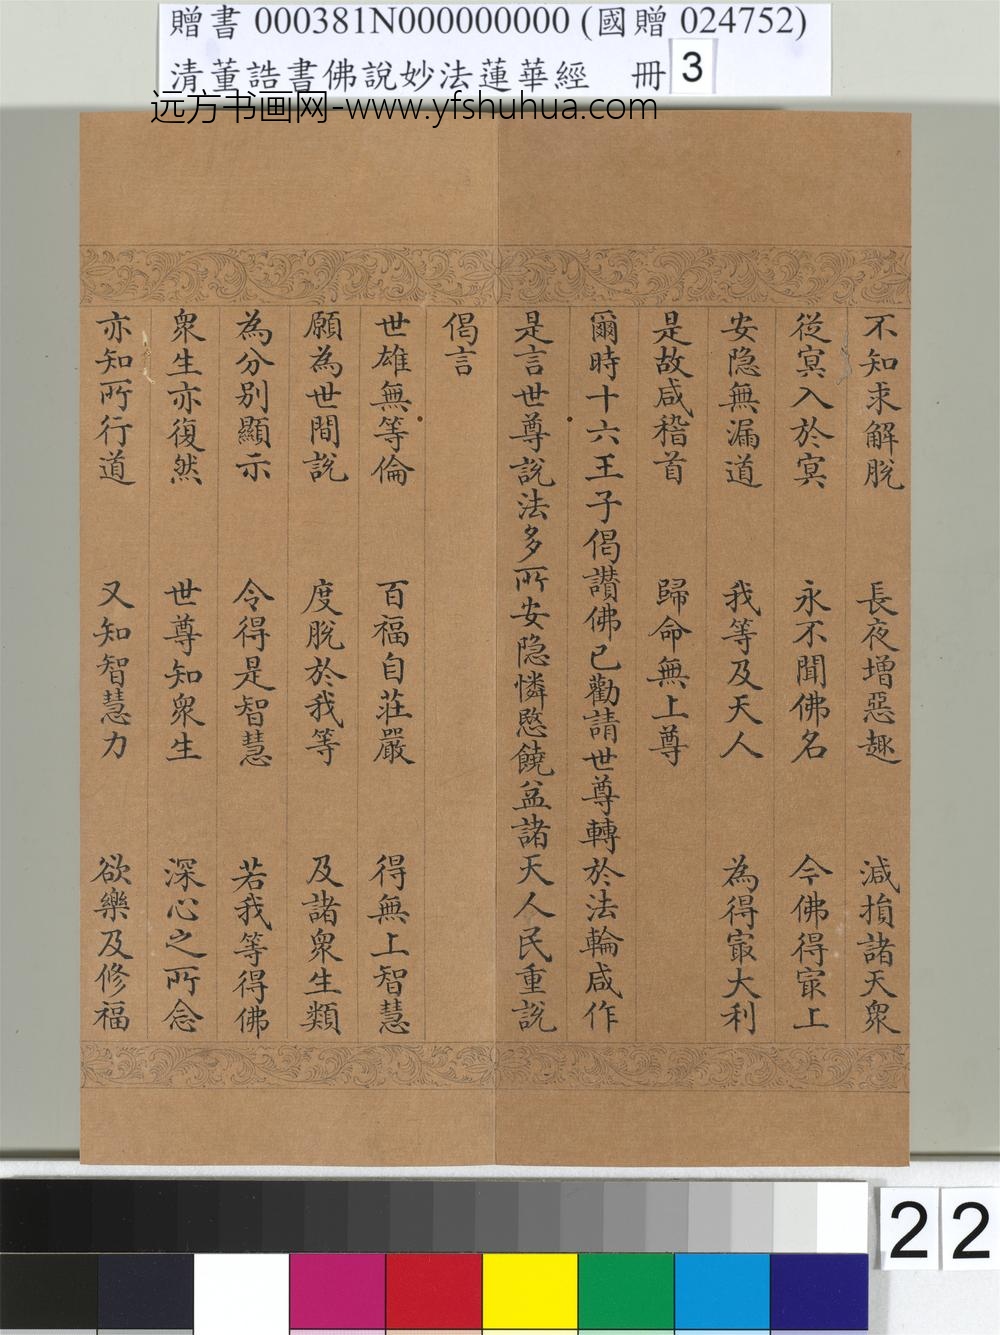 贈書 000381N000000000 (國贈 024752)
清董誥書佛說妙法蓮華經 冊 3
远方书画网-www.yfshuhua.com
不知求解脫 長夜增惡趣 減損諸天眾
從冥入於冥 永不聞佛名 今佛得冣上
安隐無漏道 我等及天人 為得冣大利
是故咸稽首 歸命無上尊
爾時十六王子偈讃佛已勸請世尊轉於法輪咸作
是言世尊說法多所安隐憐愍饒益諸天人民重說
偈言
世雄無等倫 百福自莊嚴 得無上智慧
願為世間說 度脫於我等 及諸眾生類
為分別顯示 令得是智慧 若我等得佛
眾生亦復然 世尊知眾生 深心之所念
亦知所行道 又知智慧力 欲樂及修福
22